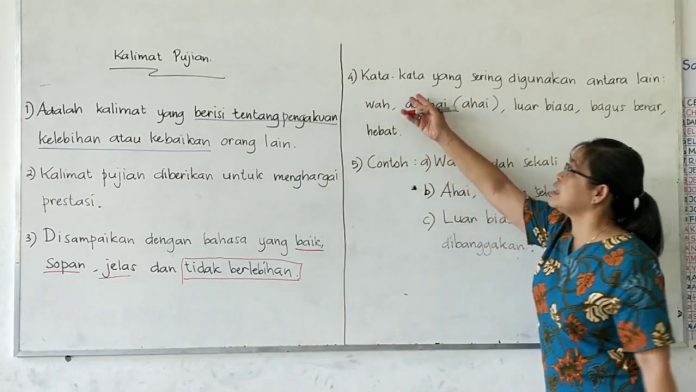 Kalimat Pujian.
1) Adalah kalimat yang berisi tentang pengakuan
kelebihan atau kebaikan orang lain.
2) Kalimat pujian diberikan untuk menghargai
prestasi.
3) Disampaikan dengan bahasa yang baik,
sopan, jelas dan tidak berlebihan.
4) Kata-kata yang sering digunakan antara lain:
wah, (ahai), luar biasa, bagus benar,
hebat.
5) Contoh: a) Wa dah sekali
b) Ahai,
c) Luar bia
dibanggakan.